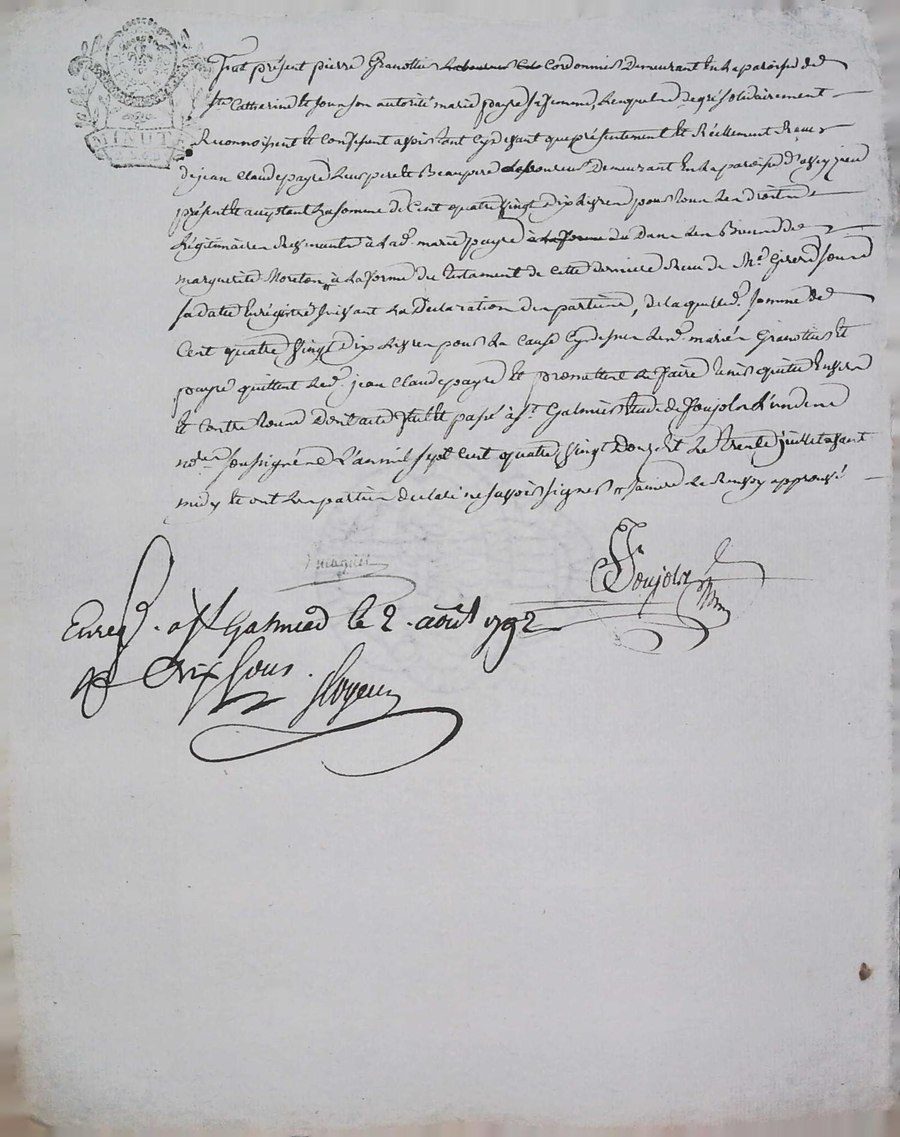 fut présent pierre Granottier cordonnier demeurant en la paroisse de
Ste Catherine et sous son autorité marie payre sa femme, lesquels de gré solidairement
Reconnoissent et Confessent avoir tant cy devant que présentement et Réellement Receu
de jean Claude payre leur pere et Beaupere demeurant en la paroisse d' icy
présent et acceptant la somme de Cent quatre vingt dix livres pour tous les droits
Légitimaires Revenants à lad. marie payre dans les Biens de
marguerite Noreton, à la forme du testament de cette derniere Receu de Me Girerd sous
sa datte Enrégistré suivant la Déclaration des parties, de laquelle d. somme de
Cent quatre vingt dix livres pour la Cause cy dessus lesd. mariés Granottier et
payre quittent led. jean Claude payre et promettent le faire tenir quitte Envers
et Contre tous dont acte fait et passé à St. Galmier Etude de Soujol l'un des
nores soussigné L'an mil sept Cent quatre vingt douze et le trente juillet avant
midy et ont les parties déclaré ne savoir signer approuvé
Soujol
Enreg. a St Galmier le 2. août 1792
dix sous.